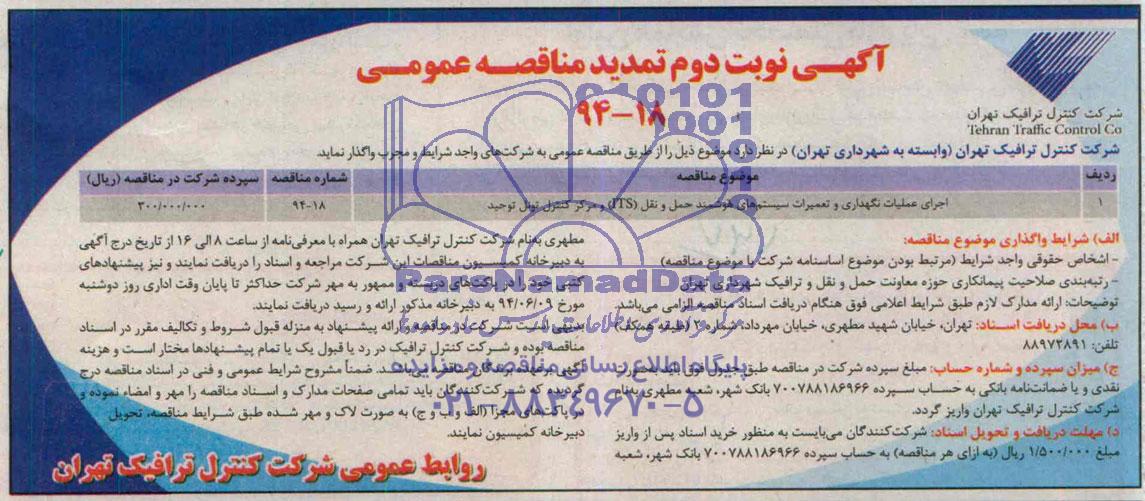 آگهی نوبت دوم تمدید مناقصه عمومی
۹۴-۱۸
شرکت کنترل ترافیک تهران
Tehran Traffic Control Co
شرکت کنترل ترافیک تهران (وابسته به شهرداری تهران) در نظر دارد موضوع ذیل را از طریق مناقصه عمومی به شرکت‌های واجد شرایط و مجرب واگذار نماید.
ردیف موضوع مناقصه شماره مناقصه سپرده شرکت در مناقصه (ریال)
۱ اجرای عملیات نگهداری و تعمیرات سیستم‌های هوشمند حمل و نقل (ITS) و مرکز کنترل تونل توحید ۹۴-۱۸ ۳۰۰/۰۰۰/۰۰۰
الف) شرایط واگذاری موضوع مناقصه:
- اشخاص حقوقی واجد شرایط (مرتبط بودن موضوع اساسنامه شرکت با موضوع مناقصه)
- رتبه‌بندی صلاحیت پیمانکاری حوزه معاونت حمل و نقل و ترافیک شهرداری تهران
توضیحات: ارائه مدارک لازم طبق شرایط اعلامی فوق هنگام دریافت اسناد مناقصه الزامی می‌باشد.
ب) محل دریافت اسناد: تهران، خیابان شهید مطهری، خیابان مهرداد، شماره ۲ (طبقه همکف)
تلفن: ۸۸۹۷۲۸۹۱
ج) میزان سپرده و شماره حساب: مبلغ سپرده شرکت در مناقصه طبق جدول فوق باید به‌صورت
نقدی و یا ضمانت‌نامه بانکی به حساب سپرده ۷۰۰۷۸۸۱۸۶۹۶۶ بانک شهر، شعبه مطهری به‌نام
شرکت کنترل ترافیک تهران واریز گردد.
د) مهلت دریافت و تحویل اسناد: شرکت‌کنندگان می‌بایست به منظور خرید اسناد پس از واریز
مبلغ ۱/۵۰۰/۰۰۰ ریال (به ازای هر مناقصه) به حساب سپرده ۷۰۰۷۸۸۱۸۶۹۶۶ بانک شهر، شعبه
مطهری به‌نام شرکت کنترل ترافیک تهران همراه با معرفی‌نامه از ساعت ۸ الی ۱۶ از تاریخ درج آگهی
به دبیرخانه کمیسیون مناقصات این شرکت مراجعه و اسناد را دریافت نمایند و نیز پیشنهادهای
کتبی خود را در پاکت‌های دربسته و ممهور به مهر شرکت حداکثر تا پایان وقت اداری روز دوشنبه
مورخ ۹۴/۰۶/۰۹ به دبیرخانه مذکور ارائه و رسید دریافت نمایند.
بدیهی است شرکت در مناقصه و ارائه پیشنهاد به منزله قبول شروط و تکالیف مقرر در اسناد
مناقصه بوده و شرکت کنترل ترافیک در رد یا قبول یک یا تمام پیشنهادها مختار است و هزینه
آگهی برعهده برندگان مناقصه می‌باشد. ضمناً مشروح شرایط عمومی و فنی در اسناد مناقصه درج
گردیده که شرکت‌کنندگان باید تمامی صفحات مدارک و اسناد مناقصه را مهر و امضاء نموده و
در پاکت‌های مجزا (الف و ب و ج) به صورت لاک و مهر شده طبق شرایط مناقصه، تحویل
دبیرخانه کمیسیون نمایند.
روابط عمومی شرکت کنترل ترافیک تهران
ParsNamadData
پایگاه اطلاع رسانی مناقصه و مزایده
۰۲۱-۸۸۳۴۹۶۷۰-۵